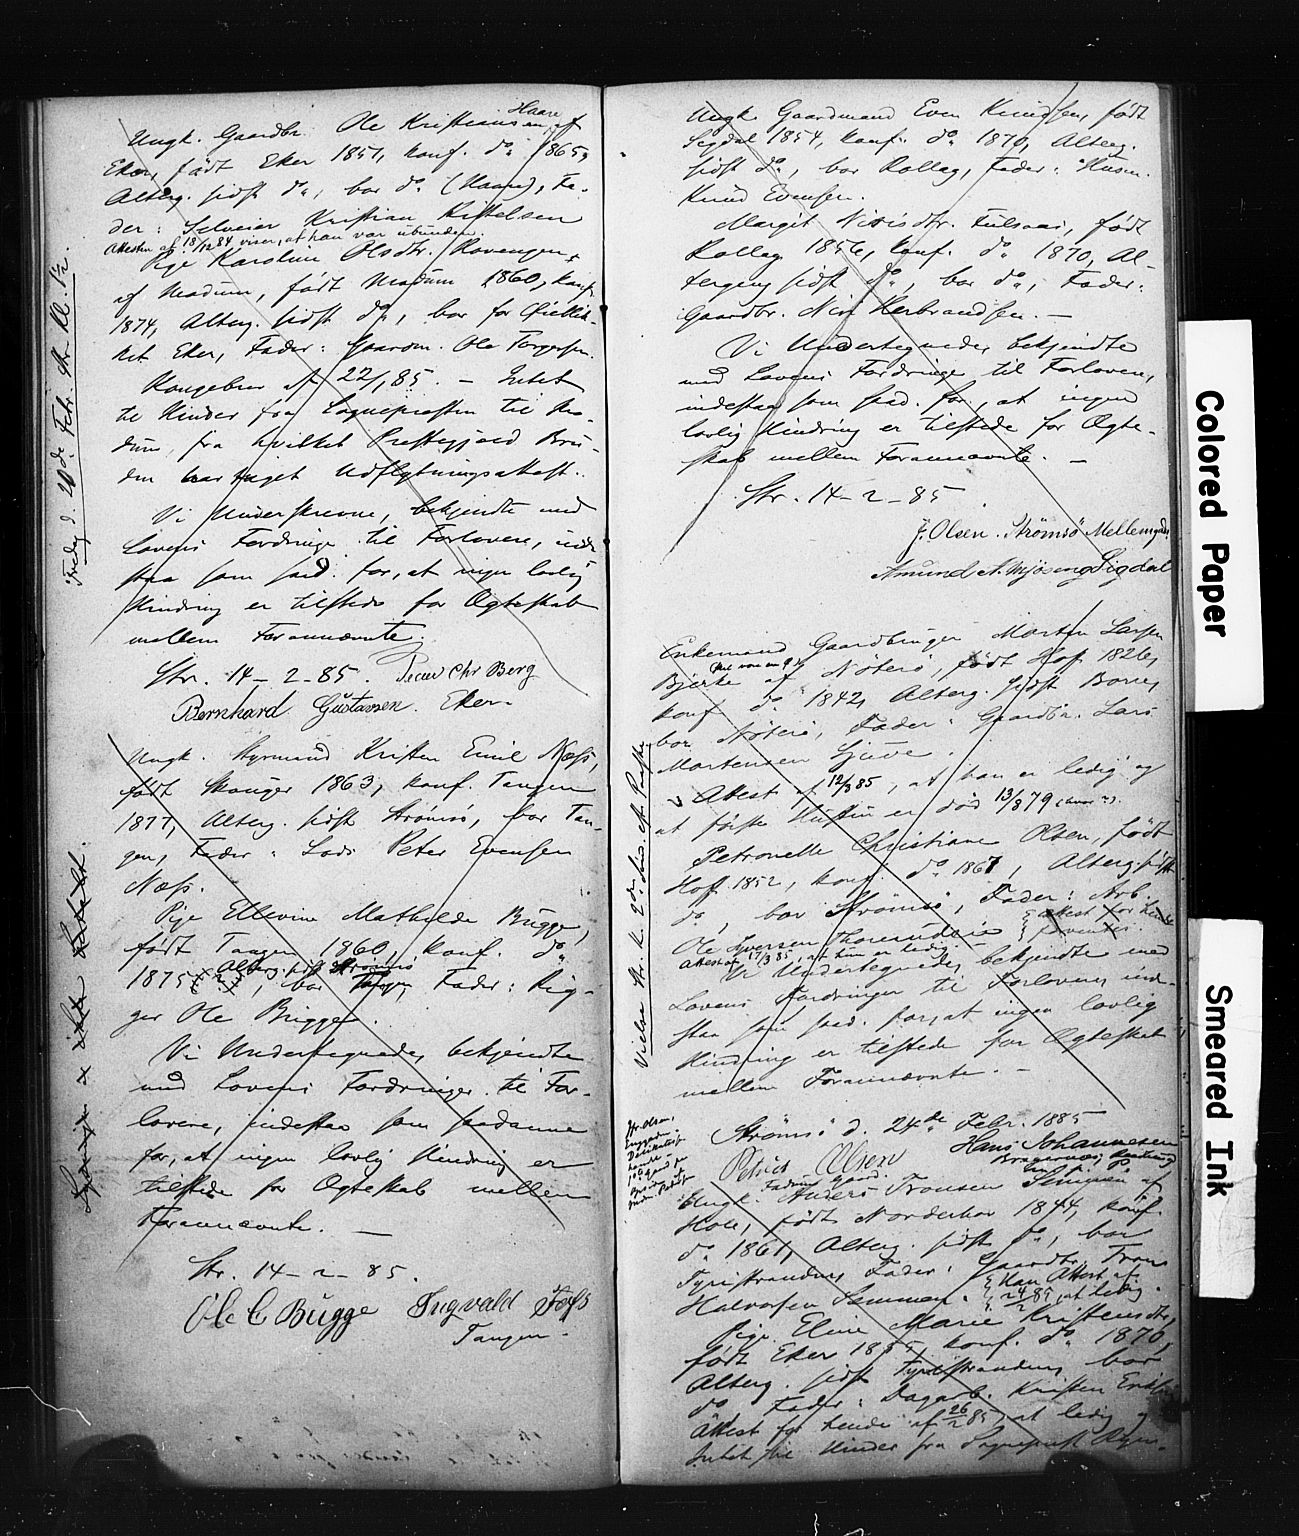 Ungk. Gaardbr. Ole Kristiansen Haare, af
Eker, født Eker 1851, konf. do 1865,
Alterg. sidst do, bor do (Haare), Fa-
der: Selveier Kristian Kittelsen
Attesten af 18/12 84 viser, at han var ubunden.
Pige Karoline Olsdtr. Kovengen,
af Modum, født Modum 1860, konf.
1874, Alterg. sidst do, bor for Øieblik-
ket Eker, Fader: Gaardm. Ole Torgersen.
Kongebrev af 22/1 85. – Intet
til Hinder fra Sognepresten til Mo-
dum, fra hvilket Prestegjæld Bru-
den har taget Udflytningsattest.
Vi Underskrevne, bekjendte med
Lovens Fordringer til Forlovere, inde-
staa som saad. for, at ingen lovlig
Hindring er tilstede for Ægteskab
mellem Forannævnte.
Str. 14-2-85. Chr Berg
Bernhard Gustavsen. Eker.
Fredag d. 20de Febr. Str. Kl. 1½.
Ungk. Styrmand Kristen Emil Næss,
født Skouger 1863, konf. Tangen
1877, Alterg. sidst Strømsø, bor Tan-
gen, Fader: Lods Peter Evensen
Næss.
Pige Ellevine Mathilde Bugge,
født Tangen 1860, konf. do
1875, Alterg. sidst Strømsø, bor Tangen, Fader: Rig-
ger Ole Bugge.
Vi Undertegnede, bekjendte
med Lovens Fordringer til For-
lovere, indestaa som saadanne
for, at ingen lovlig Hindring er
tilstede for Ægteskab mellem
Forannævnte. –
Str. 14-2-85.
Ole C Bugge Ingvald Foss
Tangen.
Ungk. Gaardmand Even Knudsen, født
Sigdal 1854, konf. do 1870, Alterg.
sidst do, bor Rollag, Fader: Husm.
Knud Evensen.
Margit Nirisdtr. Fulsaas, født
Rollag 1856, konf. do 1870, Al-
tergang sidst do, bor do, Fader:
Gaardbr. Niri Herbrandsen. –
Vi Undertegnede, bekjendte
med Lovens Fordringer til Forlovere,
indestaa som saad. for, at ingen
lovlig Hindring er tilstede for Ægte-
skab mellem Forannævnte. –
Str. 14-2-85.
J. Olsen. Strømsø Mellemgade
Amund A. Mjøseng Sigdal
Enkemand Gaardbruger Morten Larsen
Bjerke af Nøterø, født Hof 1826,
konf. do 1842, Alterg. sidst Borre,
bor Nøterø, Fader: Gaardbr. Lars
Mortensen Gjuve.
Attest af 12/3 85, at han er ledig og
at første Hustru er død 13/8 79
Petronelle Christiane Olsen, født
Hof 1852, konf. do 1867, Alterg. sidst
do, bor Strømsø, Fader: Arb.
Ole Syversen Attest for hende
forventes.
Attest af 17/3 85, at hun er ledig.
Vi Undertegnede, bekjendte med
Lovens Fordringer til Forlovere, inde-
staa som saad. for, at ingen lovlig
Hindring er tilstede for Ægteskab
mellem Forannævnte. –
Strømsø d. 24de Febr. 1885
Petrus Olsen Hans Johannesen
Ungk. Anders Tronsen Semmen af
Hole, født Norderhov 1844, konf.
do 1861, Alterg. sidst do, bor
Tyristranden, Fader: Gaardbr. Tron
Halvorsen Semmen. Han Attest af
24/2 85, at ledig.
Pige Eline Marie Kristensdtr,
født Eker 1855, konf. do 1870,
Alterg. sidst Tyristranden, bor
do, Fader: Dagarb. Kristen
Attest for hende af 26/2 85, at ledig og
Intet til Hinder fra Sogneprest
Colored Paper
Smeared Ink